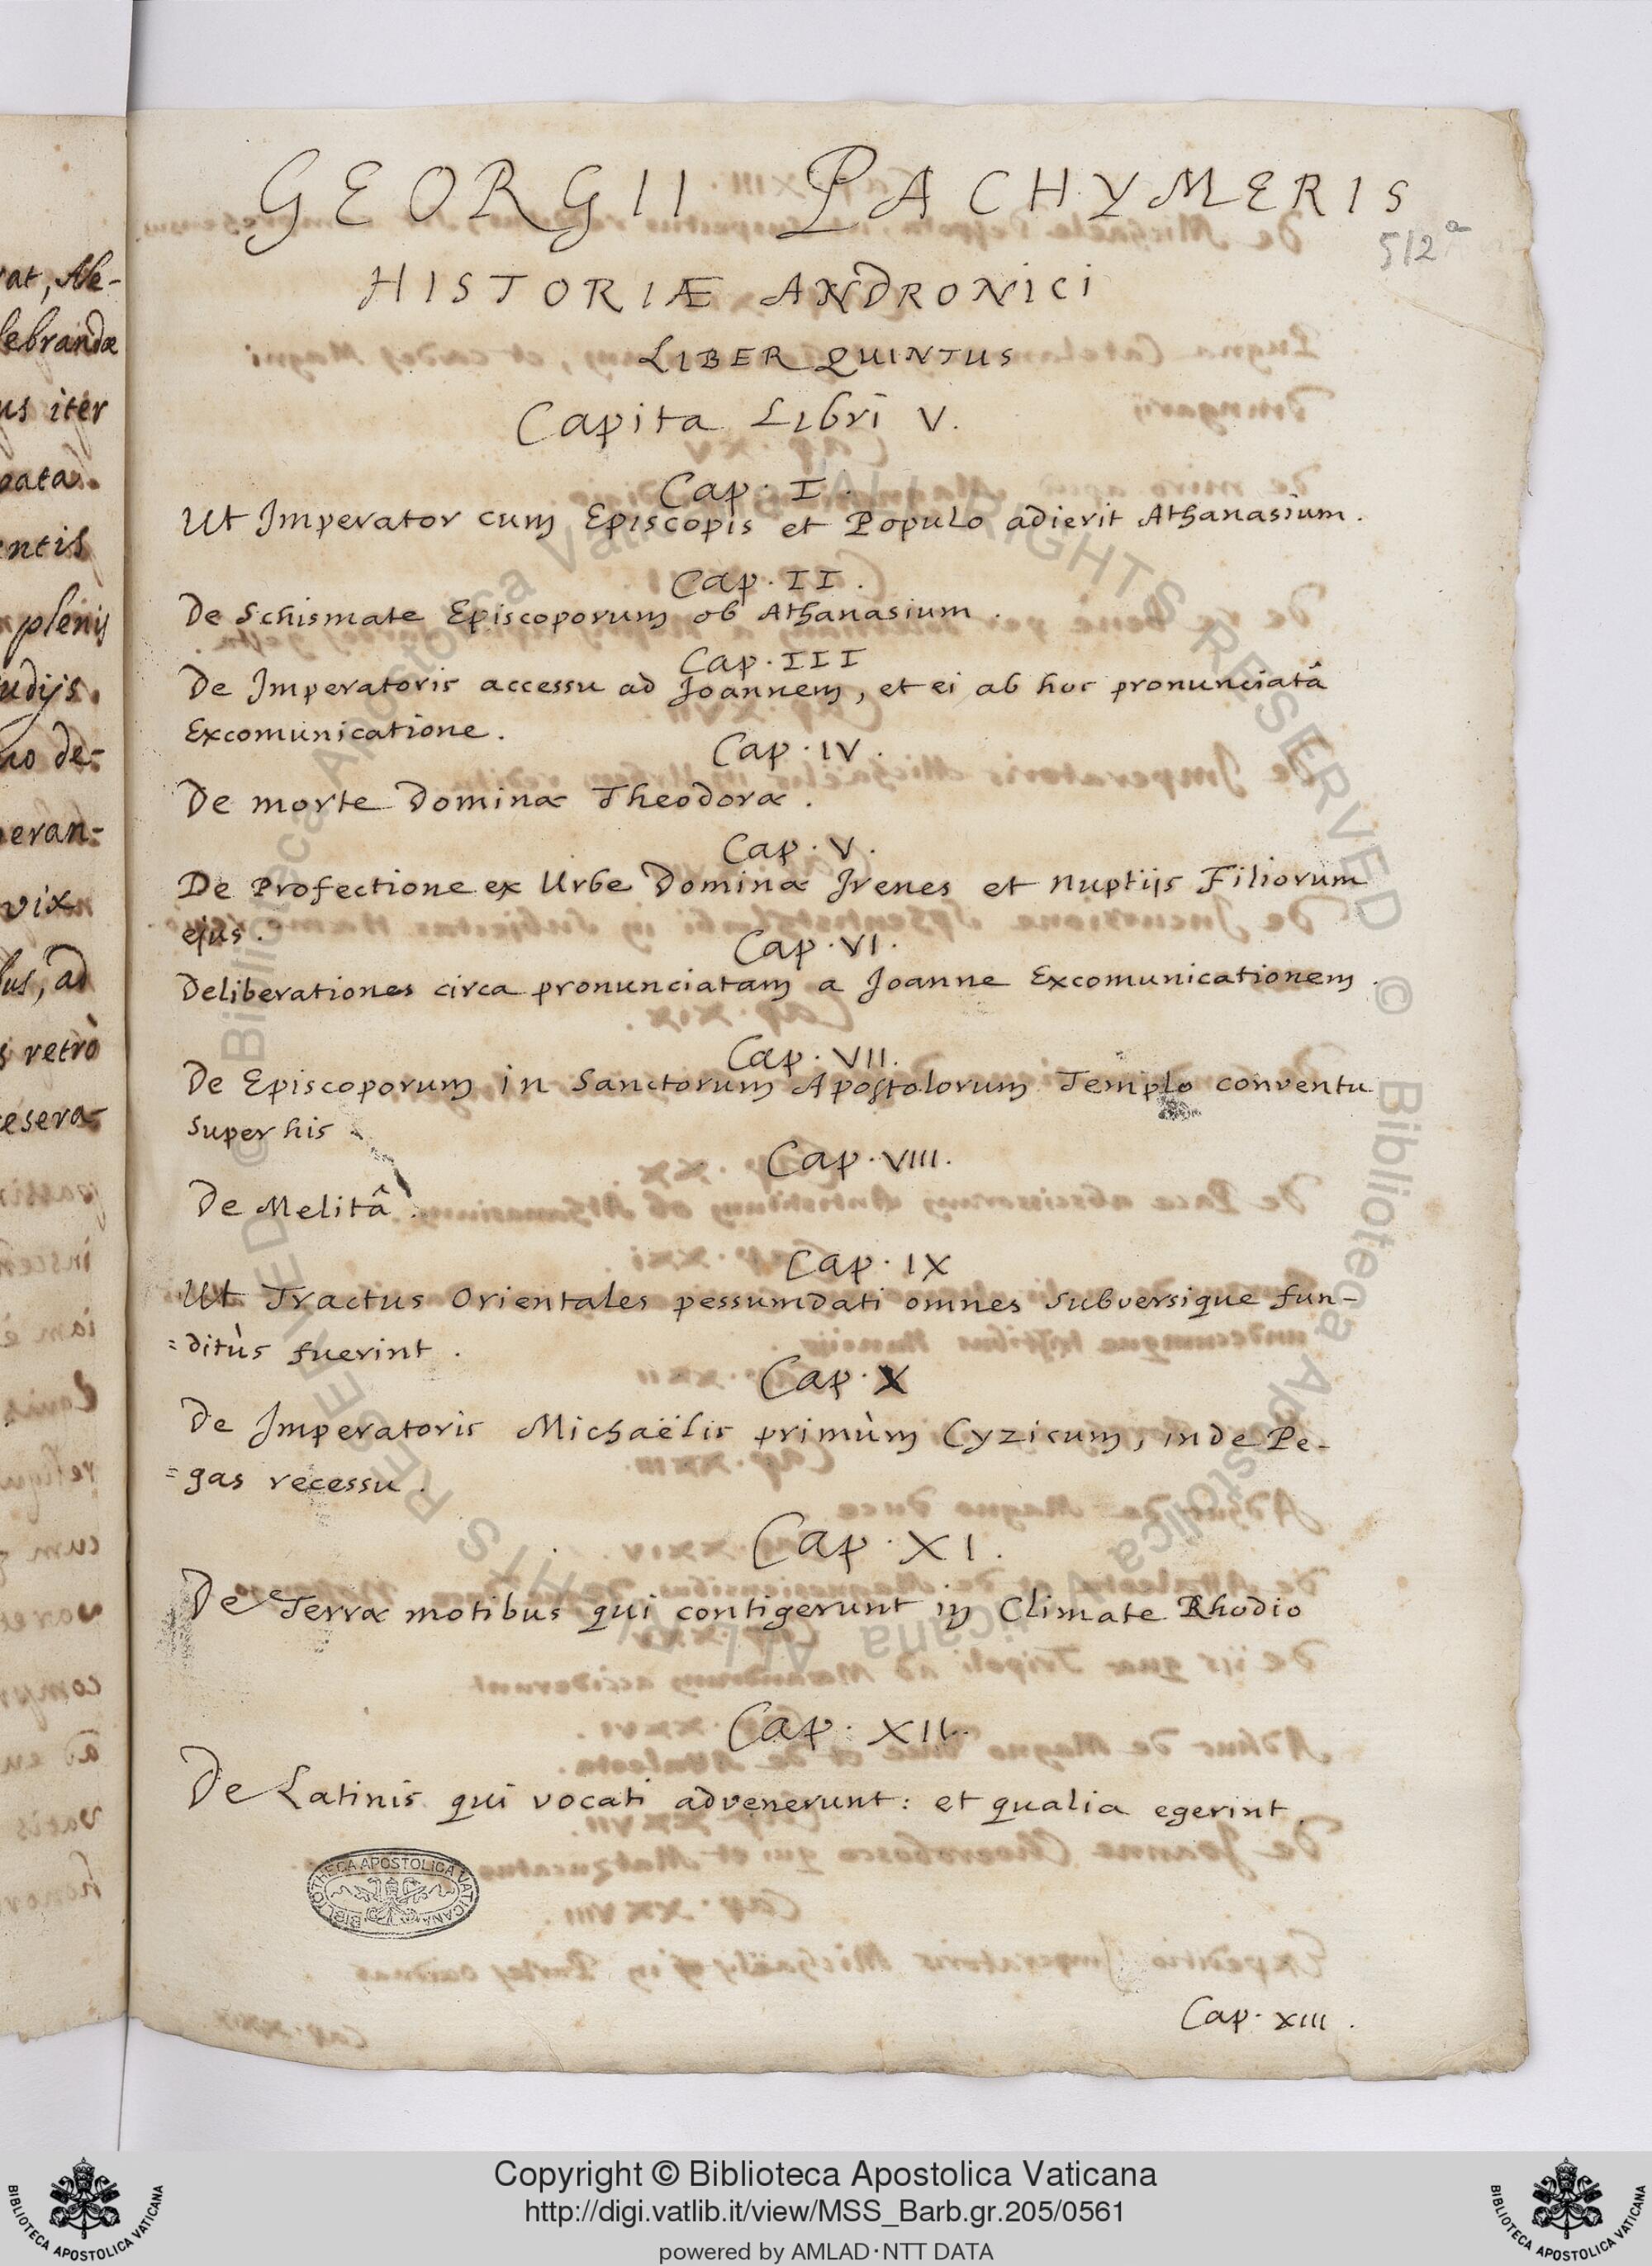 GEORGII PACHYMERIS
512a
HISTORIÆ ANDRONICI
LIBER QUINTUS
Capita Libri V.
Cap. I.
Ut Imperator cum Episcopis et Populo adierit Athanasium.
Cap. II.
De Schismate Episcoporum ob Athanasium.
Cap. III
De Imperatoris accessu ad Joannem, et ei ab hoc pronunciatâ
Excomunicatione.
Cap. IV.
De morte Dominæ Theodoræ.
Cap. V.
De Profectione ex Urbe Dominæ Irenes et nuptijs Filiorum
ejus.
Cap. VI.
Deliberationes circa pronunciatam a Joanne Excomunicationem.
Cap. VII.
De Episcoporum in Sanctorum Apostolorum Templo conventu
super his
Cap. VIII.
De Melitâ.
Cap. IX
Ut Tractus Orientales pessumdati omnes subversique fun-
=ditùs fuerint.
Cap. X
De Imperatoris Michaëlis primùm Cyzicum, inde Pe-
=gas recessu.
Cap. XI.
De Terræ motibus qui contigerunt in Climate Rhodio
Cap. XII.
De Latinis qui vocati advenerunt: et qualia egerint.
BIBLIOTHECA APOSTOLICA VATICANA
Cap. XIII.
rat, Ale-
lebrandæ
us iter
entis
plenis
udijs.
no de-
peran-
vix
bus, ad
s retrò
esera-
© Biblioteca Apostolica Vaticana ALL RIGHTS RESERVED © Biblioteca Apostolica Vaticana ALL RIGHTS RESERVED
Copyright © Biblioteca Apostolica Vaticana
http://digi.vatlib.it/view/MSS_Barb.gr.205/0561
powered by AMLAD·NTT DATA
BIBLIOTECA APOSTOLICA VATICANA
BIBLIOTECA APOSTOLICA VATICANA